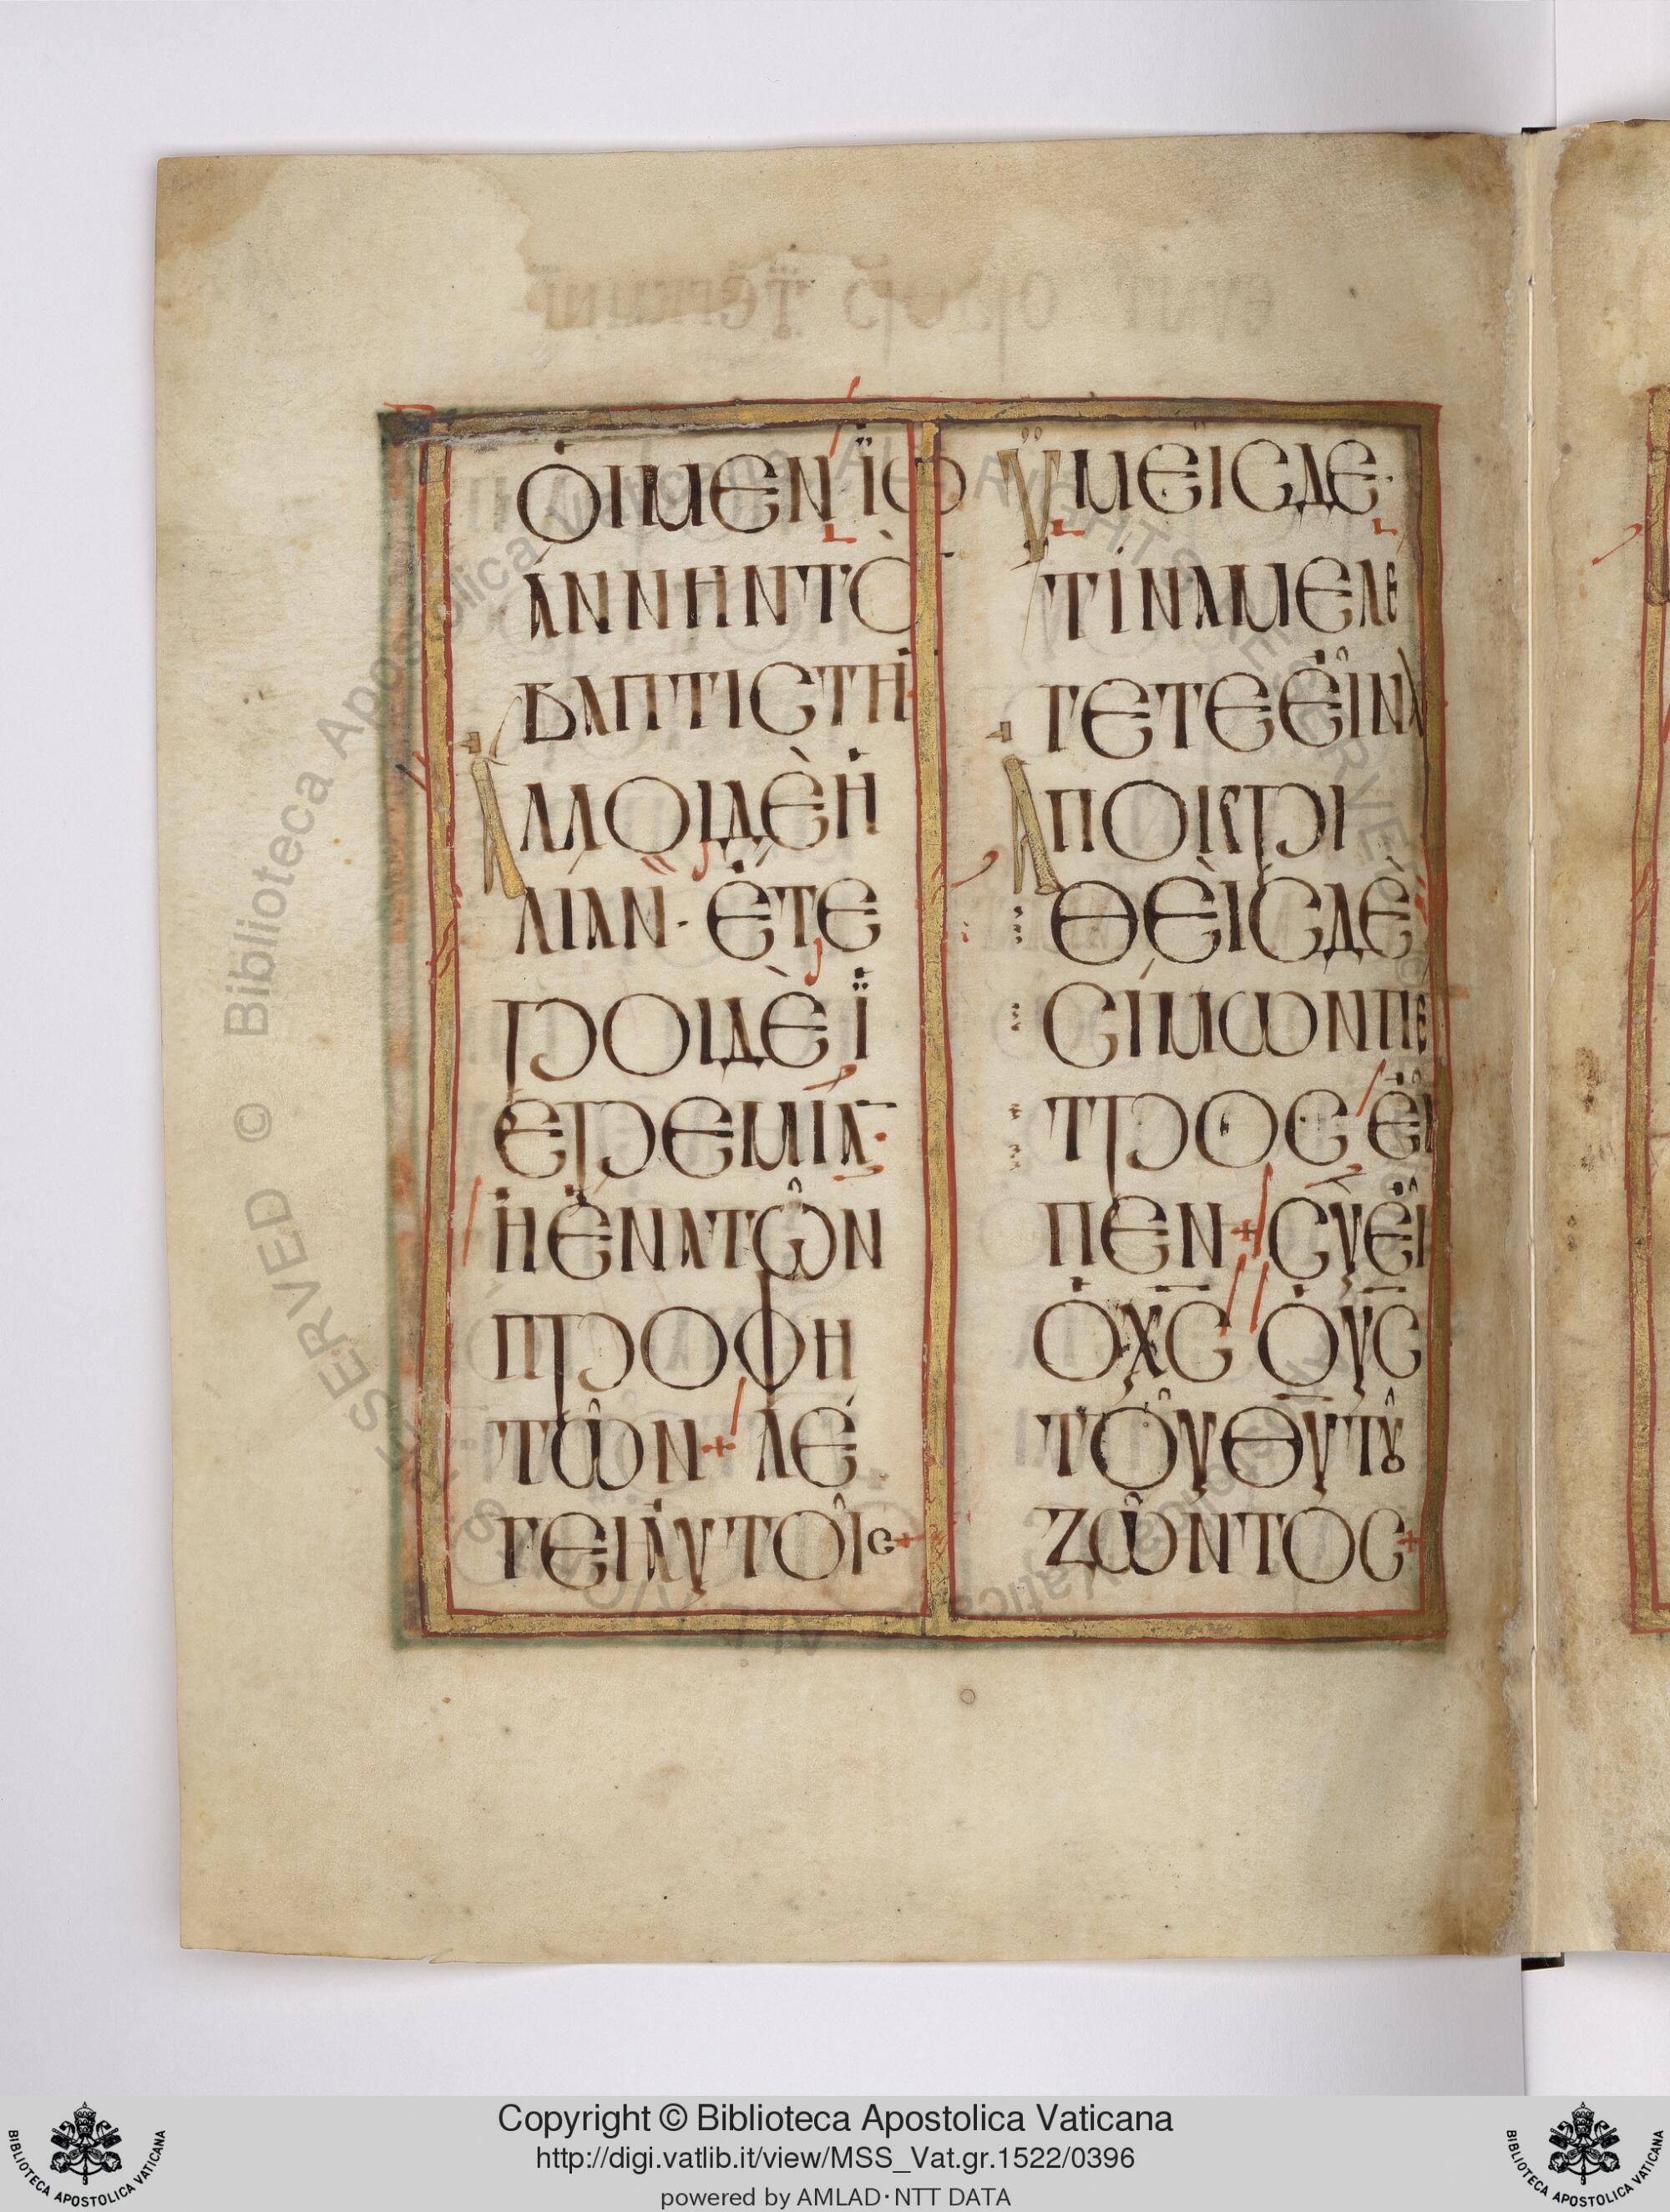 ὉΙΜΕΝ ΪΩ
ΆΝΝΗΝΤῸ
ΒΑΠΤΙΣΤΗ̄
ἈΛΛΟΙΔῈἨ
ΛΙΑΝ· ἘΤΕ
ΡΟΙΔῈ Ϊ
ΕΡΕΜΊᾹ·
ἨἘΝΑΤΩ͂Ν
ΠΡΟΦΗ
ΤΩ͂Ν+ ΛΈ
ΓΕΙἈΥΤΟΙ͂Ϲ+
ΫΜΕΙϹΔΕ·
ΤΊΝΑΜΕΛΕ
ΓΕΤΕΕἾΝΑΙ
ἈΠΟΚΡΙ
ΘΕῚϹΔΈ
ϹΊΜΩΝΠΕ
ΤΡΟϹ ΕἾ
ΠΕΝ+ϹΥΕἾ
ὉΧ̅Ϲ̅ ὉΥ̅Ϲ̅
ΤΟΥ͂Θ̅Υ̅ΤȢ͂
ΖΩ͂ΝΤΟϹ+
Copyright © Biblioteca Apostolica Vaticana
http://digi.vatlib.it/view/MSS_Vat.gr.1522/0396
powered by AMLAD·NTT DATA
BIBLIOTECA APOSTOLICA VATICANA
BIBLIOTECA APOSTOLICA VATICANA